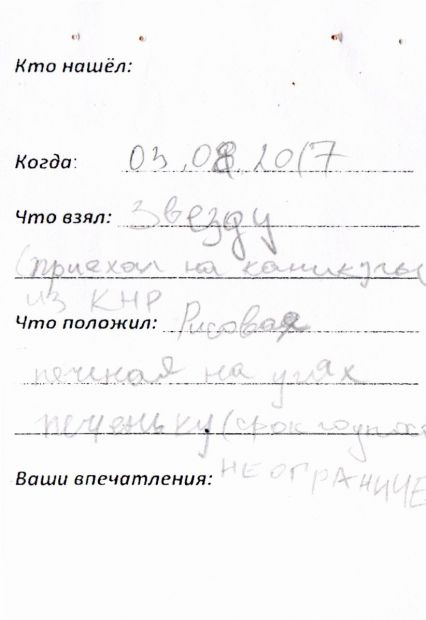 Кто нашёл:
Когда: 03.08.2017
Что взял: Звезду
(приехал на каникулы
из КНР
Что положил: Рисовая
печеная на углях
печеньку (срок годност
Ваши впечатления: НЕОГРАНИЧЕ